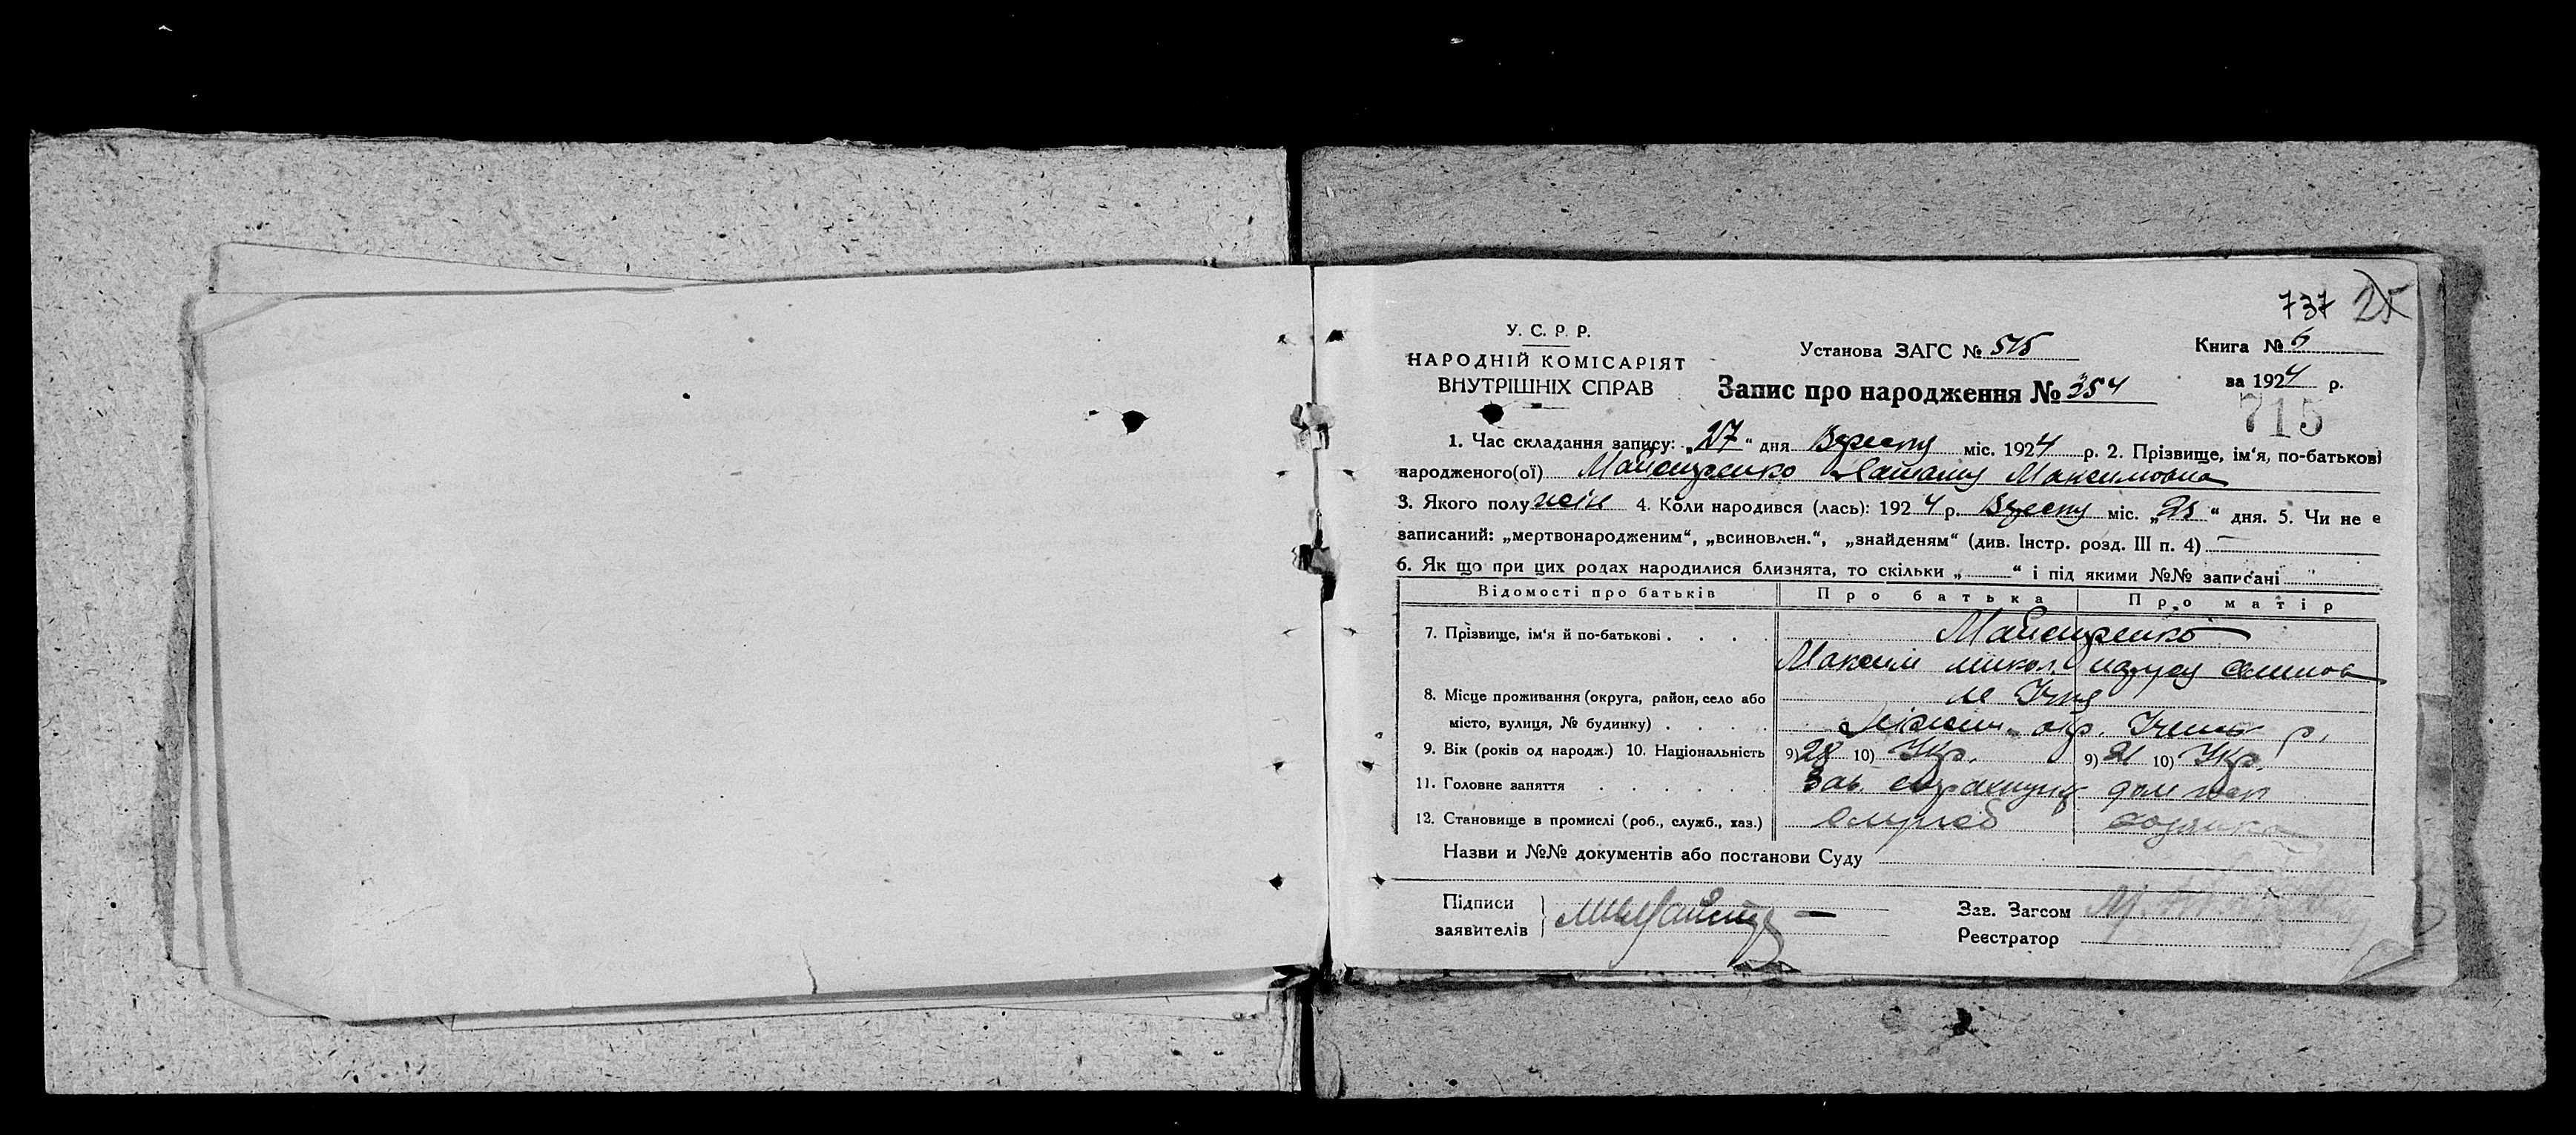 737 25
У. С. Р. Р.
НАРОДНІЙ КОМІСАРІЯТ
ВНУТРІШНІХ СПРАВ
Установа ЗАГС № 515
Книга № 6
Запис про народження № 354
за 1924 р.
715
1. Час складання запису: „27“ дня Вересня міс. 1924 р. 2. Прізвище, ім‘я, по-батькові
народженого(ої) Майстренко Максимовна
3. Якого полу жін 4. Коли народився (лась): 1924 р. Вересня міс. „25“ дня. 5. Чи не є
записаний: „мертвонародженим“, „всиновлен.“, „знайденям“ (див. Інстр. розд. III п. 4)
6. Як що при цих родах народилися близнята, то скільки „ “ і під якими №№ записані
Відомості про батьків Про батька Про матір
7. Прізвище, ім‘я й по-батькові . . . . Майстренко
Максим микол.
8. Місце проживання (округа, район, село або м Ічня
місто, вулиця, № будинку) . . . . Ніжин. окр. Ічень р.
9. Вік (років од народж.) 10. Національність 9) 28 10) Укр. 9) 21 10) Укр.
11. Головне заняття . . . . . Зав. дом
12. Становище в промислі (роб., служб., хаз.) служб хозяйка
Назви и №№ документів або постанови Суду
Підписи
заявителів
Зав. Загсом
Реєстратор